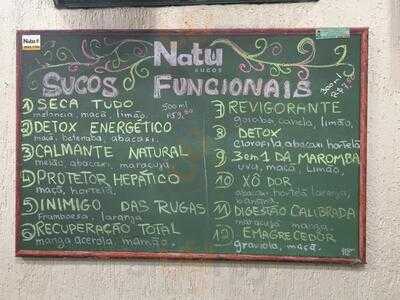 Natu
Natu
SUCOS
SUCOS FUNCIONAIS
500ml
R$
1) SECA TUDO
melancia, maçã, limão.
500ml
R$9,50
2) DETOX ENERGÉTICO
maçã, beterraba, abacaxi.
3) CALMANTE NATURAL
melão, abacaxi, maracujá
4) PROTETOR HEPÁTICO
maçã, hortelã.
5) INIMIGO DAS RUGAS
Framboesa, laranja
6) RECUPERAÇÃO TOTAL
manga acerola, mamão.
7) REVIGORANTE
goiaba, canela, limão,
8) DETOX
clorofila, abacaxi hortelã
9) 3 em 1 DA MAROMBA
uva, maçã, Limão,
10) XÔ DOR
abacaxi hortelã laranja,
banana.
11) DIGESTÃO CALIBRADA
maracujá manga.
12) EMAGRECEDOR
graviola, maçã.